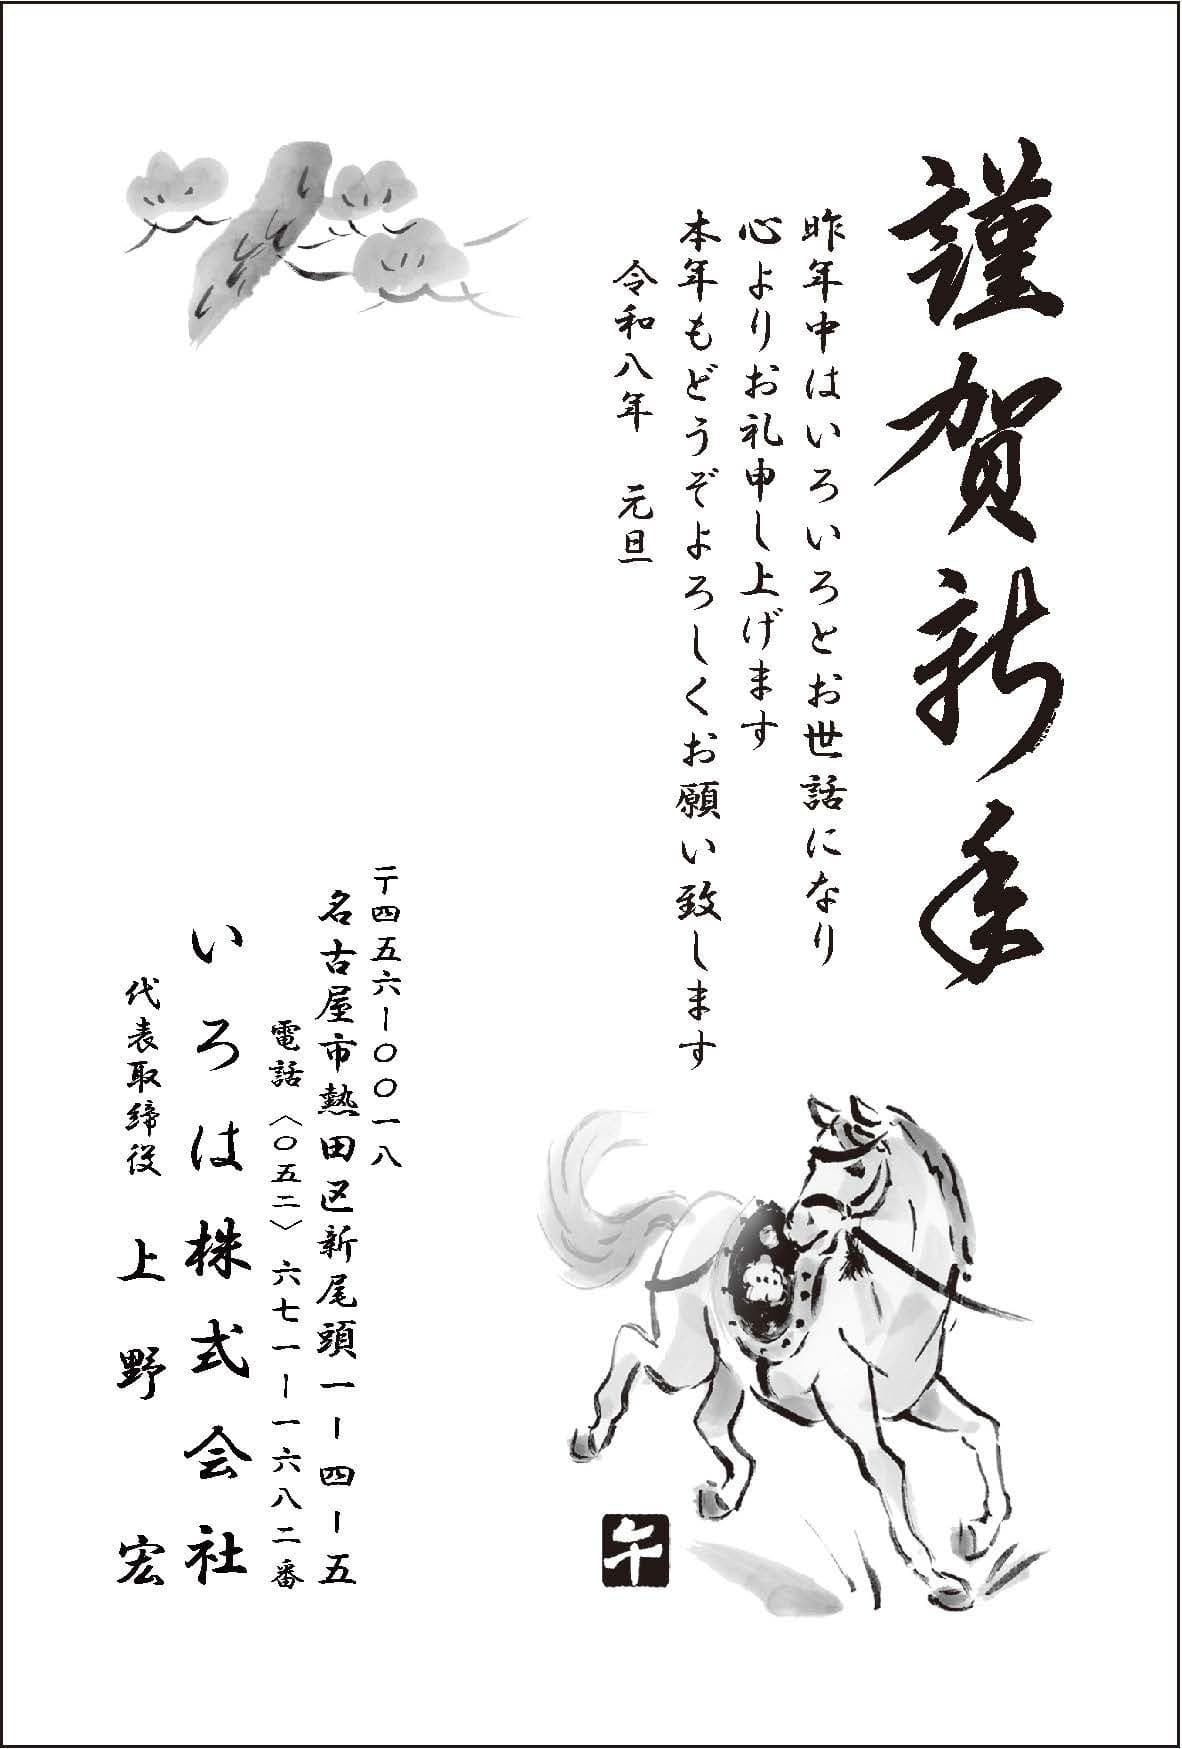 謹賀新年
昨年中はいろいろとお世話になり
心よりお礼申し上げます
本年もどうぞよろしくお願い致します
令和八年　元旦
〒四五六ー〇〇一八
名古屋市熱田区新尾頭一ー四ー五
電話〈〇五二〉六七一ー一六八二番
いろは株式会社
代表取締役　上野　宏
午